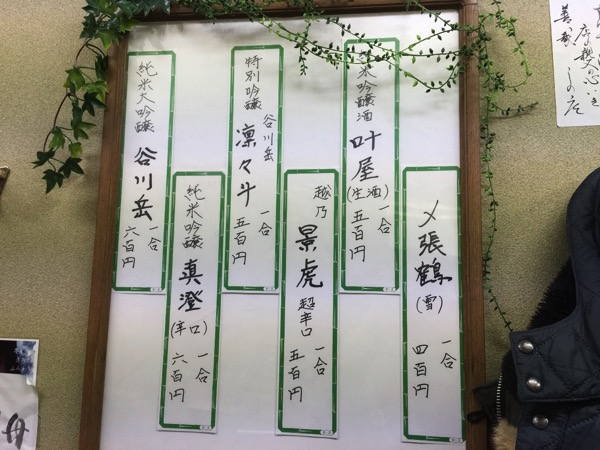 〆張鶴
(雪)
一合
四百円
米吟醸酒
叶屋
(生酒)
一合
五百円
越乃
景虎
超辛口
一合
五百円
特別吟醸
谷川岳
凛々斗
一合
五百円
純米吟醸
真澄
(辛口)
一合
六百円
純米大吟醸
谷川岳
一合
六百円